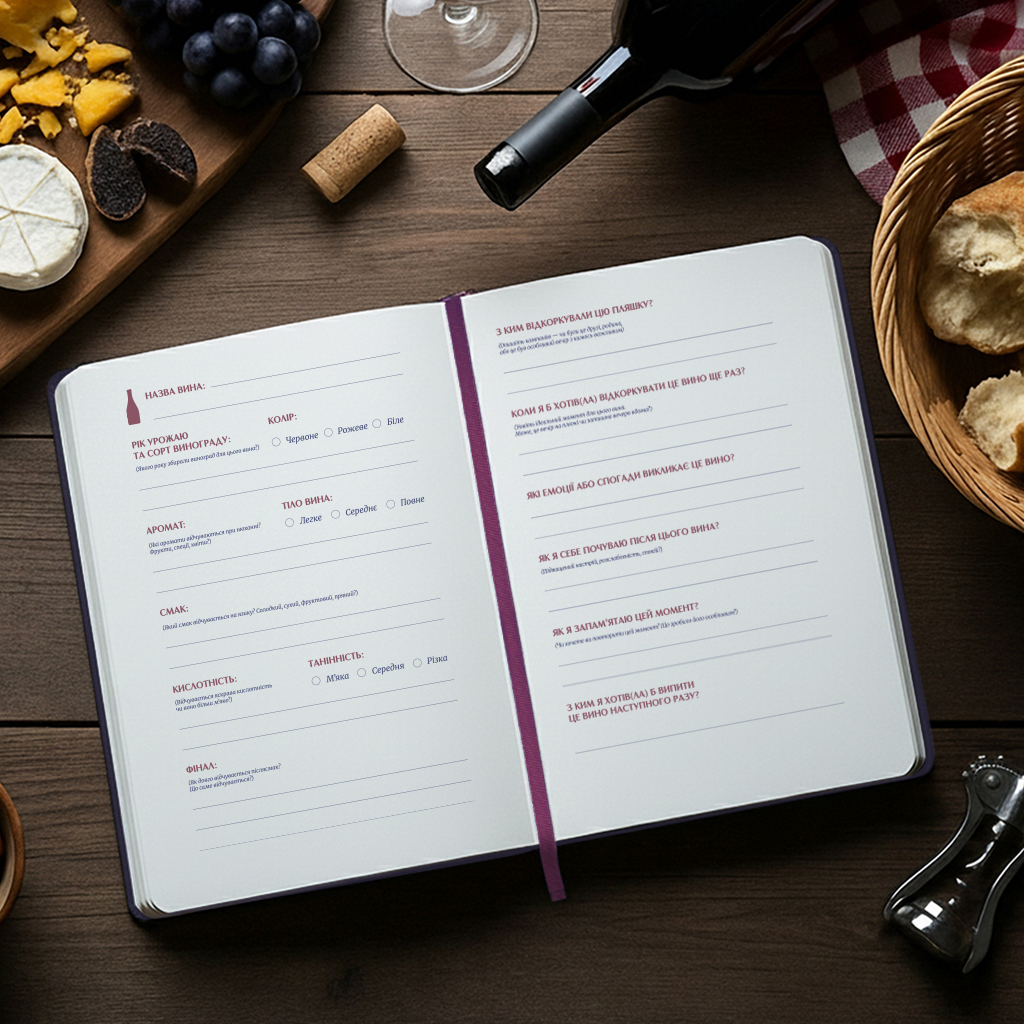 НАЗВА ВИНА:
РІК УРОЖАЮ
ТА СОРТ ВИНОГРАДУ:
(Якого року збирали виноград для цього вина?)
КОЛІР:
Червоне Рожеве Біле
АРОМАТ:
(Які аромати відчуваються при вдиханні?
Фрукти, спеції, квіти?)
ТІЛО ВИНА:
Легке Середнє Повне
СМАК:
(Який смак відчувається на язику? Солодкий, сухий, фруктовий, пряний?)
КИСЛОТНІСТЬ:
(Відчувається яскрава кислотність
чи вино більш м'яке?)
ТАНІННІСТЬ:
М'яка Середня Різка
ФІНАЛ:
(Як довго відчувається післясмак?
Що саме відчувається?)
З КИМ ВІДКОРКУВАЛИ ЦЮ ПЛЯШКУ?
(Опишіть компанію — чи були це друзі, родина,
або це був особливий вечір з кимось важливим)
КОЛИ Я Б ХОТІВ(ЛА) ВІДКОРКУВАТИ ЦЕ ВИНО ЩЕ РАЗ?
(Уявіть ідеальний момент для цього вина.
Може, це вечір на пляжі чи затишна вечеря вдома?)
ЯКІ ЕМОЦІЇ АБО СПОГАДИ ВИКЛИКАЄ ЦЕ ВИНО?
ЯК Я СЕБЕ ПОЧУВАЮ ПІСЛЯ ЦЬОГО ВИНА?
(Підвищений настрій, розслабленість, спокій?)
ЯК Я ЗАПАМ'ЯТАЮ ЦЕЙ МОМЕНТ?
(Чи хочете ви повторити цей момент? Що зробило його особливим?)
З КИМ Я ХОТІВ(ЛА) Б ВИПИТИ
ЦЕ ВИНО НАСТУПНОГО РАЗУ?